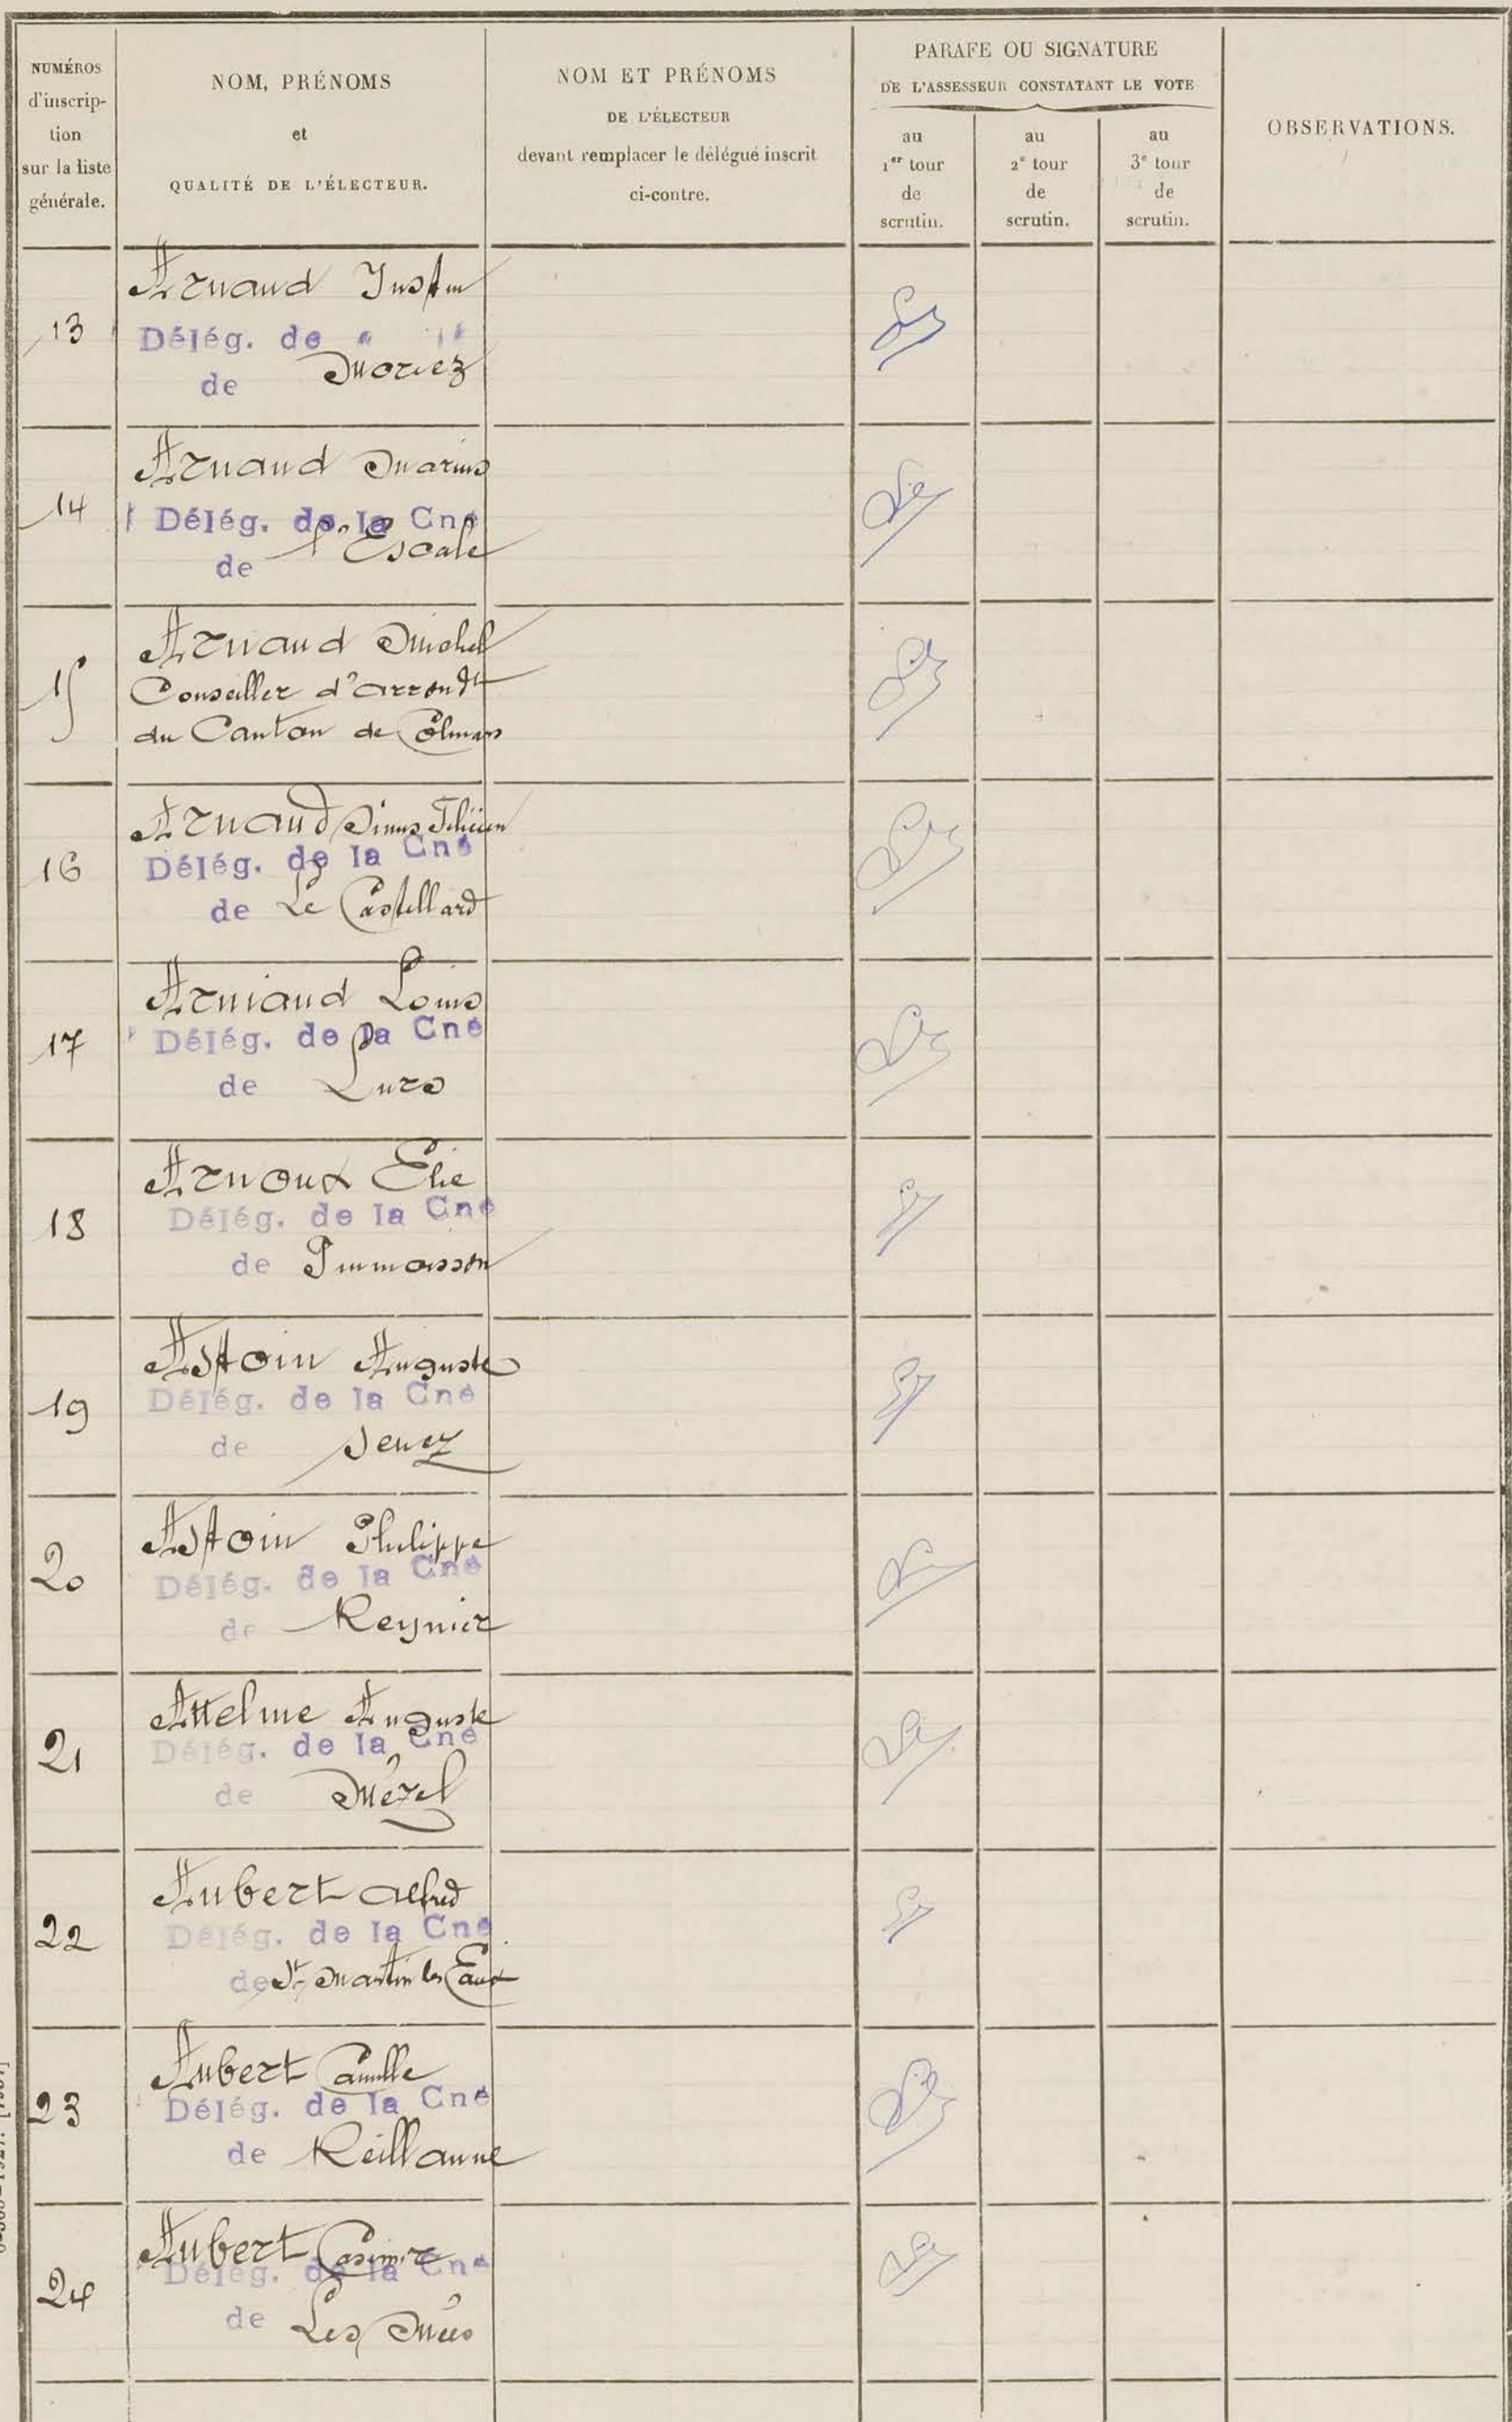 NUMÉROS
d'inscrip-
tion
sur la liste
générale.
NOM, PRÉNOMS
et
QUALITÉ DE L'ÉLECTEUR.
NOM ET PRÉNOMS
DE L'ÉLECTEUR
devant remplacer le délégué inscrit
ci-contre.
PARAFE OU SIGNATURE
DE L'ASSESSEUR CONSTATANT LE VOTE
au
1er tour
de
scrutin.
au
2e tour
de
scrutin.
au
3e tour
de
scrutin.
OBSERVATIONS.
13
Arnaud Justin
Délég. de
de Moriez
14
Arnaud Marius
Délég. de la Cne
de l'Escale
15
Arnaud Michel
Conseiller d'arrondt
du Canton de Colmars
16
Arnaud Félicien
Délég. de la Cne
de Le Castellard
17
Arniaud Louis
Délég. de la Cne
de Lurs
18
Arnoux Elie
Délég. de la Cne
de Puimoisson
19
Astoin Auguste
Délég. de la Cne
de Senez
20
Astoin Philippe
Délég. de la Cne
de Reynier
21
Attelme Auguste
Délég. de la Cne
de Mézel
22
Aubert Alfred
Délég. de la Cne
de St Martin les Eaux
23
Aubert Camille
Délég. de la Cne
de Reillanne
24
Aubert Casimir
Délég. de la Cne
de Les Mées